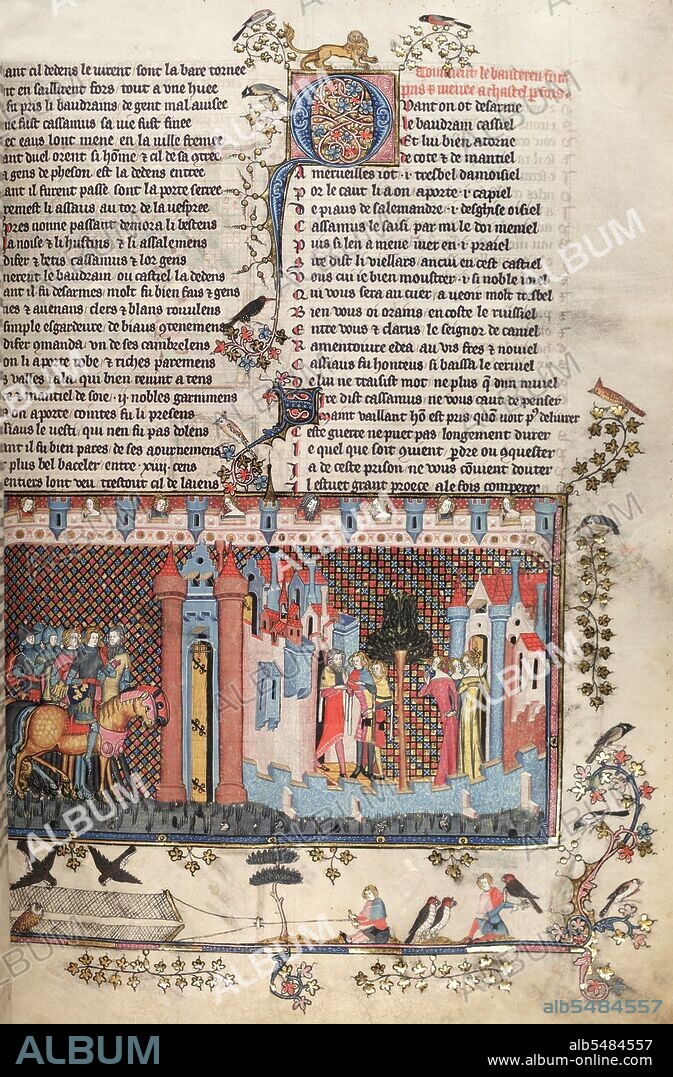 ant cil dedens le uirent sont la bare tornee
nt en saillirent fors tout a vne huee
fu pris li baudrains de gent mal auisee
ne fust cassamus sa vie fust finee
ec eaus lont mene en la ville
ant duel orent si home & cil de sa
a gens de pheson est la dedens entree
ant il furent passe sont la porte serree
remest li assaus au tor de la vespree
pres nonne passant demora li
a noise & li hustins & li
difer & betis cassamus &
le baudrain ou castiel la dedens
ant il fu desarmes molt fu bien fais & gens
nes & auenans clers & blans
simple esgardeure de biaus
difer qmanda vn de ses
on li aporte robe & riches paremens
s valles ala qui bien reuint a tens
& mantiel de soie ij nobles garnimens
on aporte cointes fu li presens
siaus le uesti qui nen fu pas dolens
ant il fu bien pares de ses aournemens
plus bel baceler entre xiiij cens
entiers lont veu trestout cil de laiens
Comment le bauderen fu
pris & menee a
Quant on ot desarme
le baudrain cassiel
Et lui bien atorne
de cote & de mantiel
A merueilles iot i tresbel damoisiel
Por le caut li a on aporte i capiel
De piaus de salemandre i desghyse oisiel
Cassamus le saisi par mi le doi meniel
Puis si len a mene iuer en i praiel
Sire dist li viellars ancui en cest castiel
Vous cui ie bien moustrer i si noble
Qui vous sera au cuer a veoir molt tresbel
Bien vous oi orains en coste le ruissiel
Entre vous & clarus le seignor de
Ramentoiure edea au vis fres & nouiel
Cassiaus fu honteus si baissa le ceruiel
De lui ne traisist mot ne plus q dun
Sire dist cassamus ne vous caut de penser
Maint vaillant hom est pris
Ceste guerre ne puet pas longement durer
Ie quel que soit perdre ou
Ia de ceste prison ne vous couient douter
Il estuet grant proece a le fois comperer
ALBUM
alb5484557
ALBUM
alb5484557
www.album-online.com